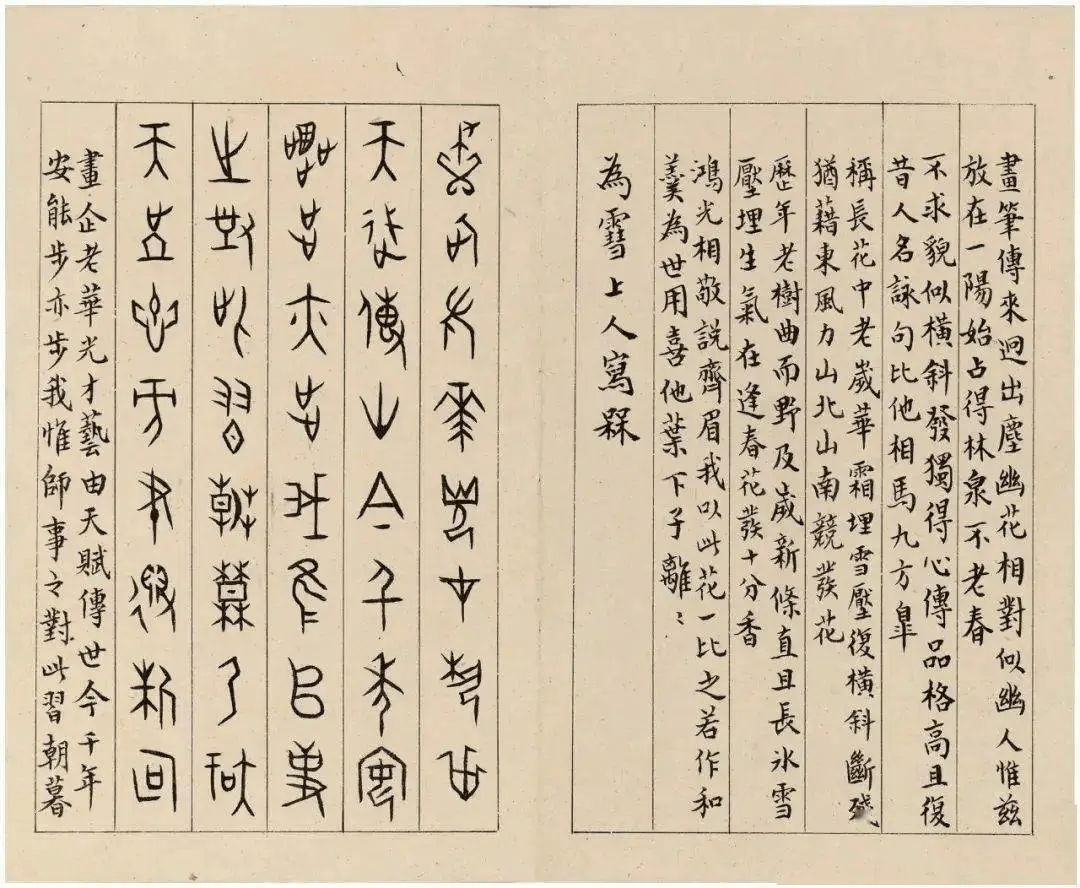 畫筆傳來迥出塵幽花相對似幽人惟茲
放在一陽始占得林泉不老春
不求貌似橫斜發獨得心傳品格高且復
昔人名詠句比他相馬九方臯
稱長花中老歲華霜埋雪壓復橫斜斷殘
猶藉東風力山北山南競發花
歷年老樹曲而野及歲新條直且長氷雪
壓埋生氣在逢春花發十分香
鴻光相敬說齊眉我以此花一比之若作和
羹為世用喜他葉下子離〻
為䨮上人寫槑
畫企老華光才藝由
天賦傳世今千年安
能步亦步我惟師事
之對此習朝暮
畫企老華光才藝由天賦傳世今千年
安能步亦步我惟師事之對此習朝暮